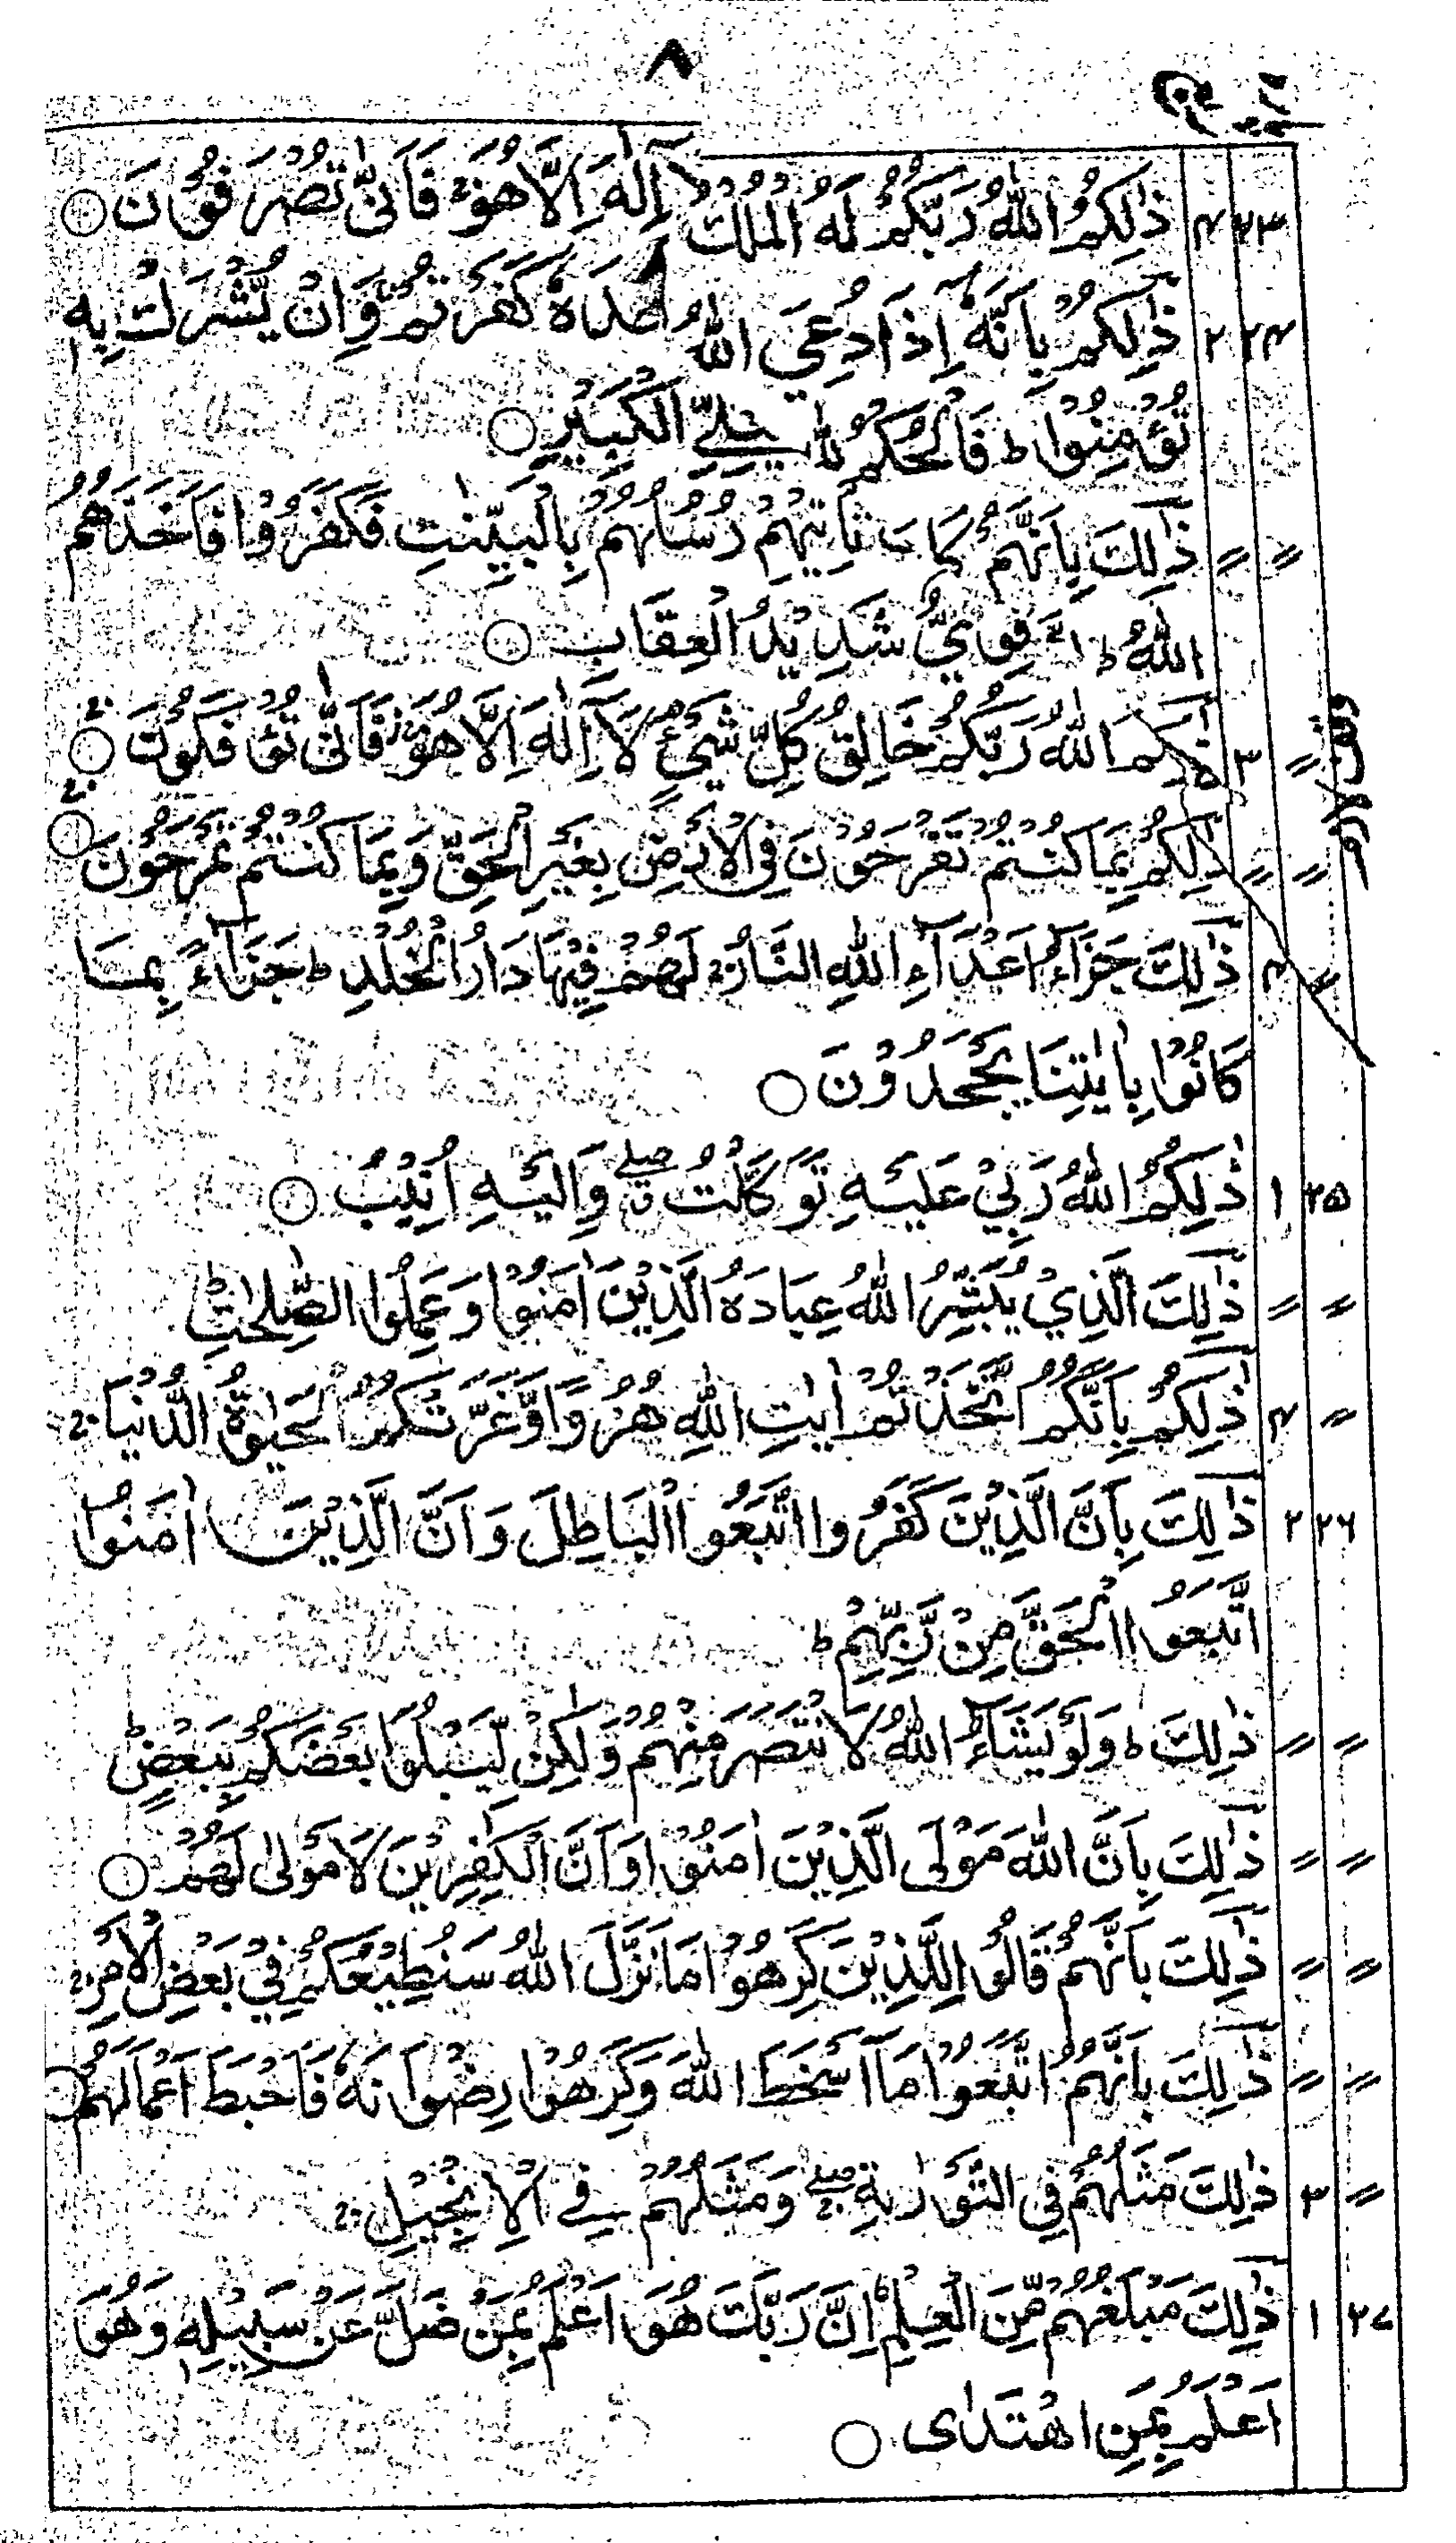 ٨
٢٣ ٤ ذٰلِكُمُ اللّٰهُ رَبُّكُمْ لَهُ الْمُلْكُ ؕ لَاۤ اِلٰهَ اِلَّا هُوَ ۚ فَاَنّٰى تُصْرَفُوْنَ ○
٢٤ ٢ ذٰلِكُمْ بِاَنَّهٗۤ اِذَا دُعِيَ اللّٰهُ وَحْدَهٗ كَفَرْتُمْ ۚ وَاِنْ يُّشْرَكْ بِهٖ
تُؤْمِنُوْا ؕ فَالْحُكْمُ لِلّٰهِ الْعَلِيِّ الْكَبِيْرِ ○
〃 〃 ذٰلِكَ بِاَنَّهُمْ كَانَتْ تَّاْتِيْهِمْ رُسُلُهُمْ بِالْبَيِّنٰتِ فَكَفَرُوْا فَاَخَذَهُمُ
اللّٰهُ ؕ اِنَّهٗ قَوِيٌّ شَدِيْدُ الْعِقَابِ ○
〃 ٣ ذٰلِكُمُ اللّٰهُ رَبُّكُمْ خَالِقُ كُلِّ شَيْءٍ ۘ لَاۤ اِلٰهَ اِلَّا هُوَ ۚ فَاَنّٰى تُؤْفَكُوْنَ ○
〃 〃 ذٰلِكُمْ بِمَا كُنْتُمْ تَفْرَحُوْنَ فِى الْاَرْضِ بِغَيْرِ الْحَقِّ وَبِمَا كُنْتُمْ تَمْرَحُوْنَ ○
〃 ٤ ذٰلِكَ جَزَآءُ اَعْدَآءِ اللّٰهِ النَّارُ ۚ لَهُمْ فِيْهَا دَارُ الْخُلْدِ ؕ جَزَآءًۢ بِمَا
كَانُوْا بِاٰيٰتِنَا يَجْحَدُوْنَ ○
٢٥ ١ ذٰلِكُمُ اللّٰهُ رَبِّيْ عَلَيْهِ تَوَكَّلْتُ ۖ وَاِلَيْهِ اُنِيْبُ ○
〃 〃 ذٰلِكَ الَّذِيْ يُبَشِّرُ اللّٰهُ عِبَادَهُ الَّذِيْنَ اٰمَنُوْا وَعَمِلُوا الصّٰلِحٰتِ ؕ
〃 ٤ ذٰلِكُمْ بِاَنَّكُمُ اتَّخَذْتُمْ اٰيٰتِ اللّٰهِ هُزُوًا وَّغَرَّتْكُمُ الْحَيٰوةُ الدُّنْيَا ۚ
٢٦ ٢ ذٰلِكَ بِاَنَّ الَّذِيْنَ كَفَرُوا اتَّبَعُوا الْبَاطِلَ وَاَنَّ الَّذِيْنَ اٰمَنُوا
اتَّبَعُوا الْحَقَّ مِنْ رَّبِّهِمْ ؕ
〃 〃 ذٰلِكَ ؕ وَلَوْ يَشَآءُ اللّٰهُ لَانْتَصَرَ مِنْهُمْ وَلٰكِنْ لِّيَبْلُوَا۟ بَعْضَكُمْ بِبَعْضٍ ؕ
〃 〃 ذٰلِكَ بِاَنَّ اللّٰهَ مَوْلَى الَّذِيْنَ اٰمَنُوْا وَاَنَّ الْكٰفِرِيْنَ لَا مَوْلٰى لَهُمْ ○
〃 〃 ذٰلِكَ بِاَنَّهُمْ قَالُوْا لِلَّذِيْنَ كَرِهُوْا مَا نَزَّلَ اللّٰهُ سَنُطِيْعُكُمْ فِيْ بَعْضِ الْاَمْرِ ۚ
〃 〃 ذٰلِكَ بِاَنَّهُمُ اتَّبَعُوْا مَاۤ اَسْخَطَ اللّٰهَ وَكَرِهُوْا رِضْوَانَهٗ فَاَحْبَطَ اَعْمَالَهُمْ ○
〃 ٣ ذٰلِكَ مَثَلُهُمْ فِى التَّوْرٰىةِ ۛۖ وَمَثَلُهُمْ فِى الْاِنْجِيْلِ ۚ
٢٧ ١ ذٰلِكَ مَبْلَغُهُمْ مِّنَ الْعِلْمِ ؕ اِنَّ رَبَّكَ هُوَ اَعْلَمُ بِمَنْ ضَلَّ عَنْ سَبِيْلِهٖ وَهُوَ
اَعْلَمُ بِمَنِ اهْتَدٰى ○